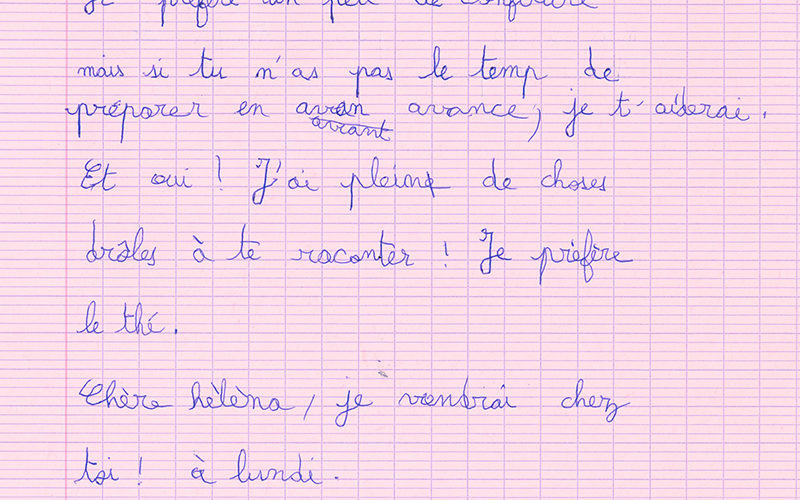 Je préfère un peu de confiture
mais si tu n'as pas le temp de
préparer en avan avance, je t'aiderai.
avant
Et oui ! J'ai pleine de choses
drôles à te raconter ! Je préfère
le thé.
Chère hèlèna, je vendrai chez
toi ! à lundi.